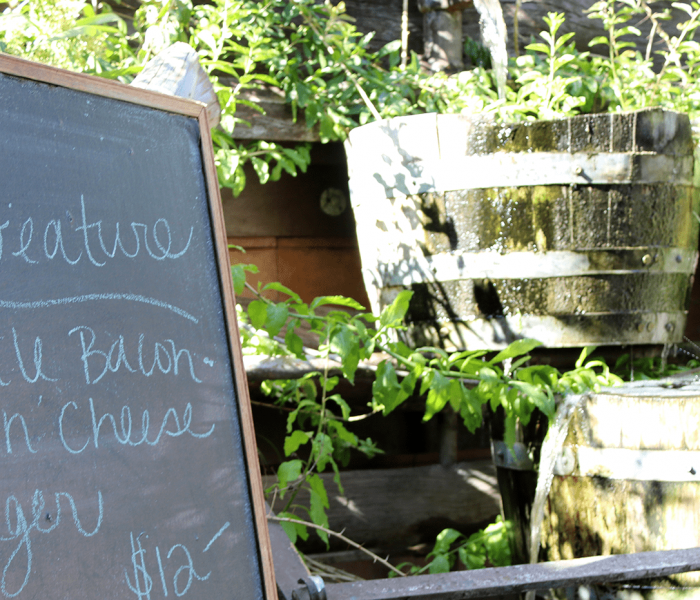 eature
Bacon-
n' Cheese
ger
$12